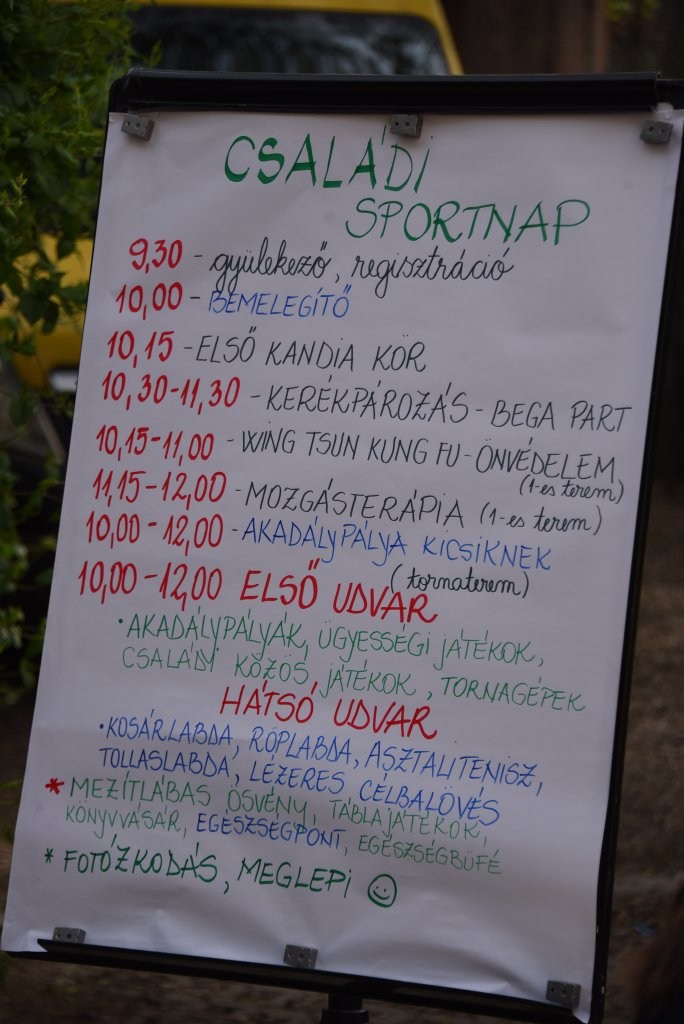 CSALÁDI
SPORTNAP
9,30 - gyülekező, regisztráció
10,00 - BEMELEGÍTŐ
10,15 - ELSŐ KANDIA KÖR
10,30-11,30 - KERÉKPÁROZÁS - BEGA PART
10,15-11,00 - WING TSUN KUNG FU - ÖNVÉDELEM
(1-es terem)
11,15-12,00 - MOZGÁSTERÁPIA (1-es terem)
10,00-12,00 - AKADÁLYPÁLYA KICSIKNEK
(tornaterem)
10,00-12,00 ELSŐ UDVAR
• AKADÁLYPÁLYÁK, ÜGYESSÉGI JÁTÉKOK,
CSALÁDI KÖZÖS JÁTÉKOK, TORNAGÉPEK
HÁTSÓ UDVAR
• KOSÁRLABDA, RÖPLABDA, ASZTALITENISZ,
TOLLASLABDA, LÉZERES CÉLBALÖVÉS
* MEZÍTLÁBAS ÖSVÉNY, TÁBLAJÁTÉKOK,
KÖNYVVÁSÁR, EGÉSZSÉGPONT, EGÉSZSÉGBÜFÉ
* FOTÓZKODÁS, MEGLEPI ☺